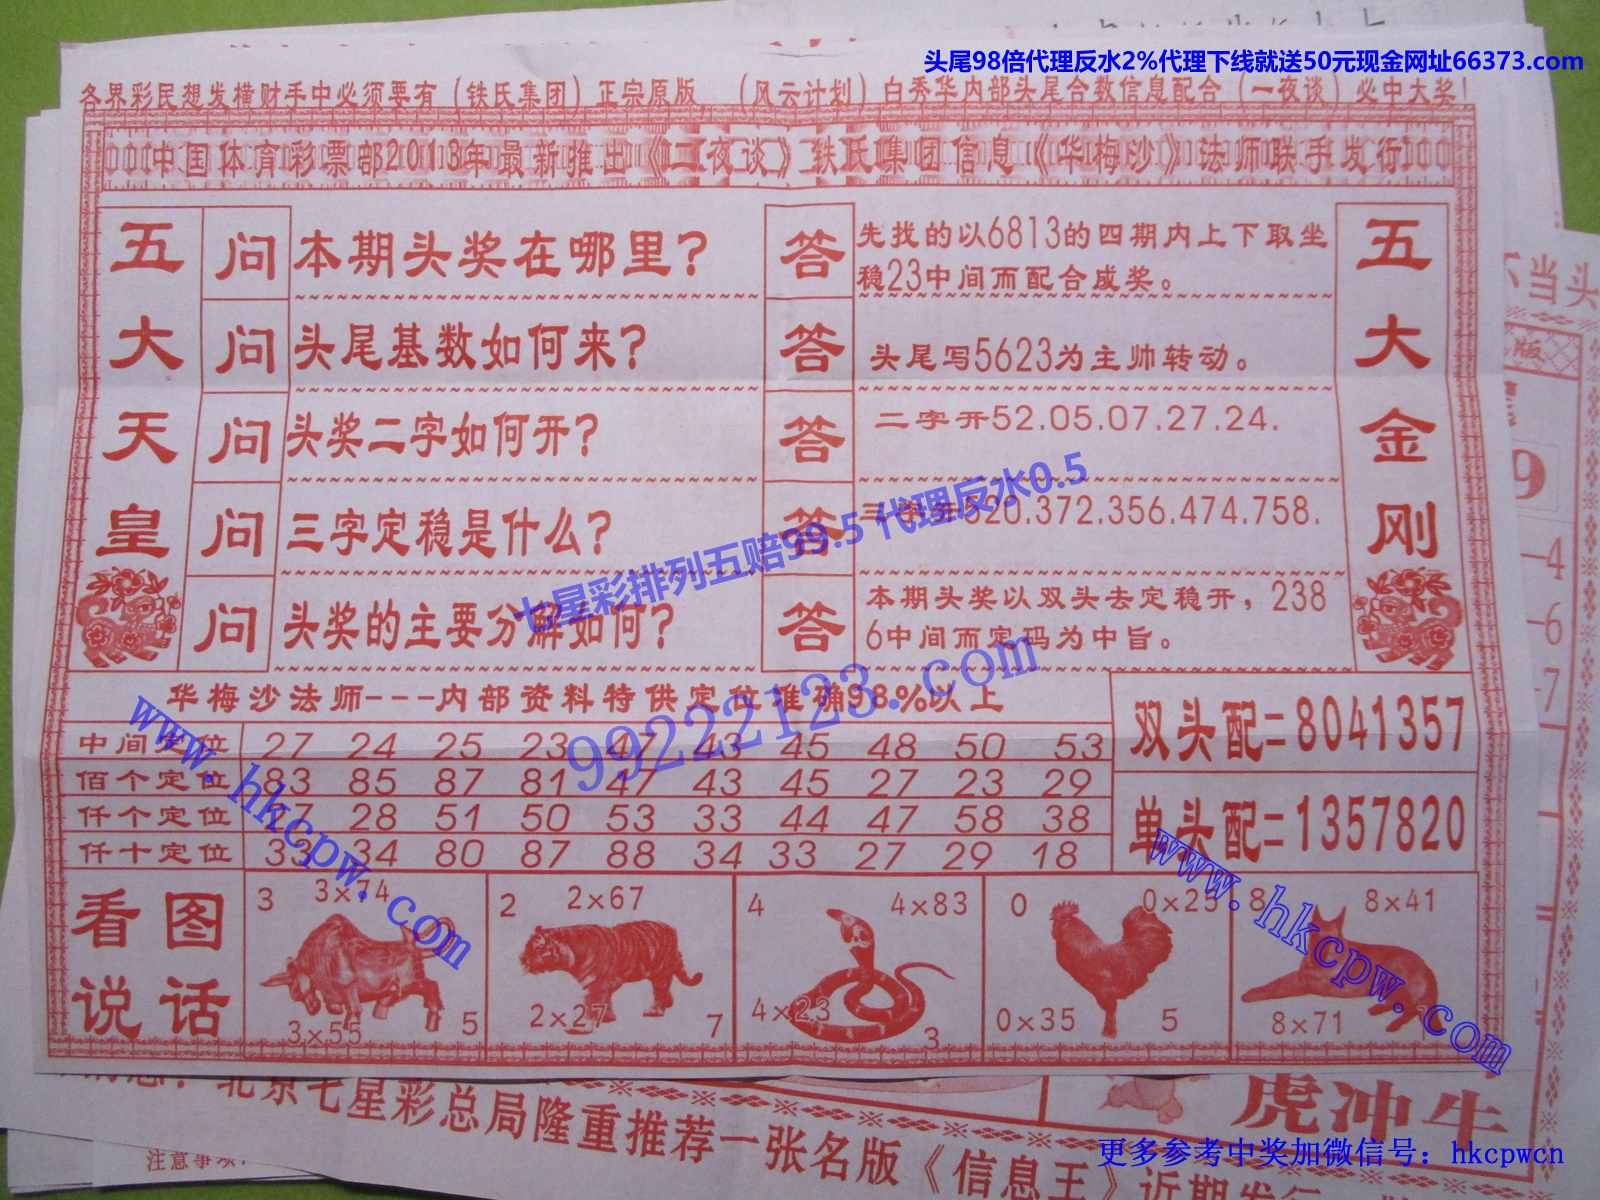 头尾98倍代理反水2%代理下线就送50元现金网址66373.com
各界彩民想发横财手中必须要有（铁氏集团）正宗原版，（风云计划）白秀华内部头尾合数信息配合（一夜谈）必中大奖！
中国体育彩票部2013年最新推出《二夜谈》铁氏集团信息《华梅沙》法师联手发行
五大天皇
问 本期头奖在哪里？
答 先找的以6813的四期内上下取坐
稳23中间而配合成奖。
问 头尾基数如何来？
答 头尾写5623为主帅转动。
问 头奖二字如何开？
答 二字开52.05.07.27.24.
问 三字定稳是什么？
答 520.372.356.474.758.
问 头奖的主要分解如何？
答 本期头奖以双头去定稳开，238
6中间而定码为中旨。
五大金刚
七星彩排列五赔99.5 代理反水0.5
99222123.com
华梅沙法师---内部资料特供定位准确98.%以上
中间定位 27 24 25 23 47 43 45 48 50 53
佰个定位 83 85 87 81 47 43 45 27 23 29
仟个定位 28 51 50 53 33 44 47 58 38
仟十定位 33 34 80 87 88 34 33 27 29 18
双头配=8041357
单头配=1357820
www.hkcpw.com
www.hkcpw.com
看图
说话
3 3×74
3×55 5
2 2×67
2×27 7
4 4×83
4×23 3
0 0×25
0×35 5
8 8×41
8×71
不当头
版
9
-4
-6
-7
虎冲牛
北京七星彩总局隆重推荐一张名版《信息王》近期发行
注意事项
更多参考中奖加微信号：hkcpwcn